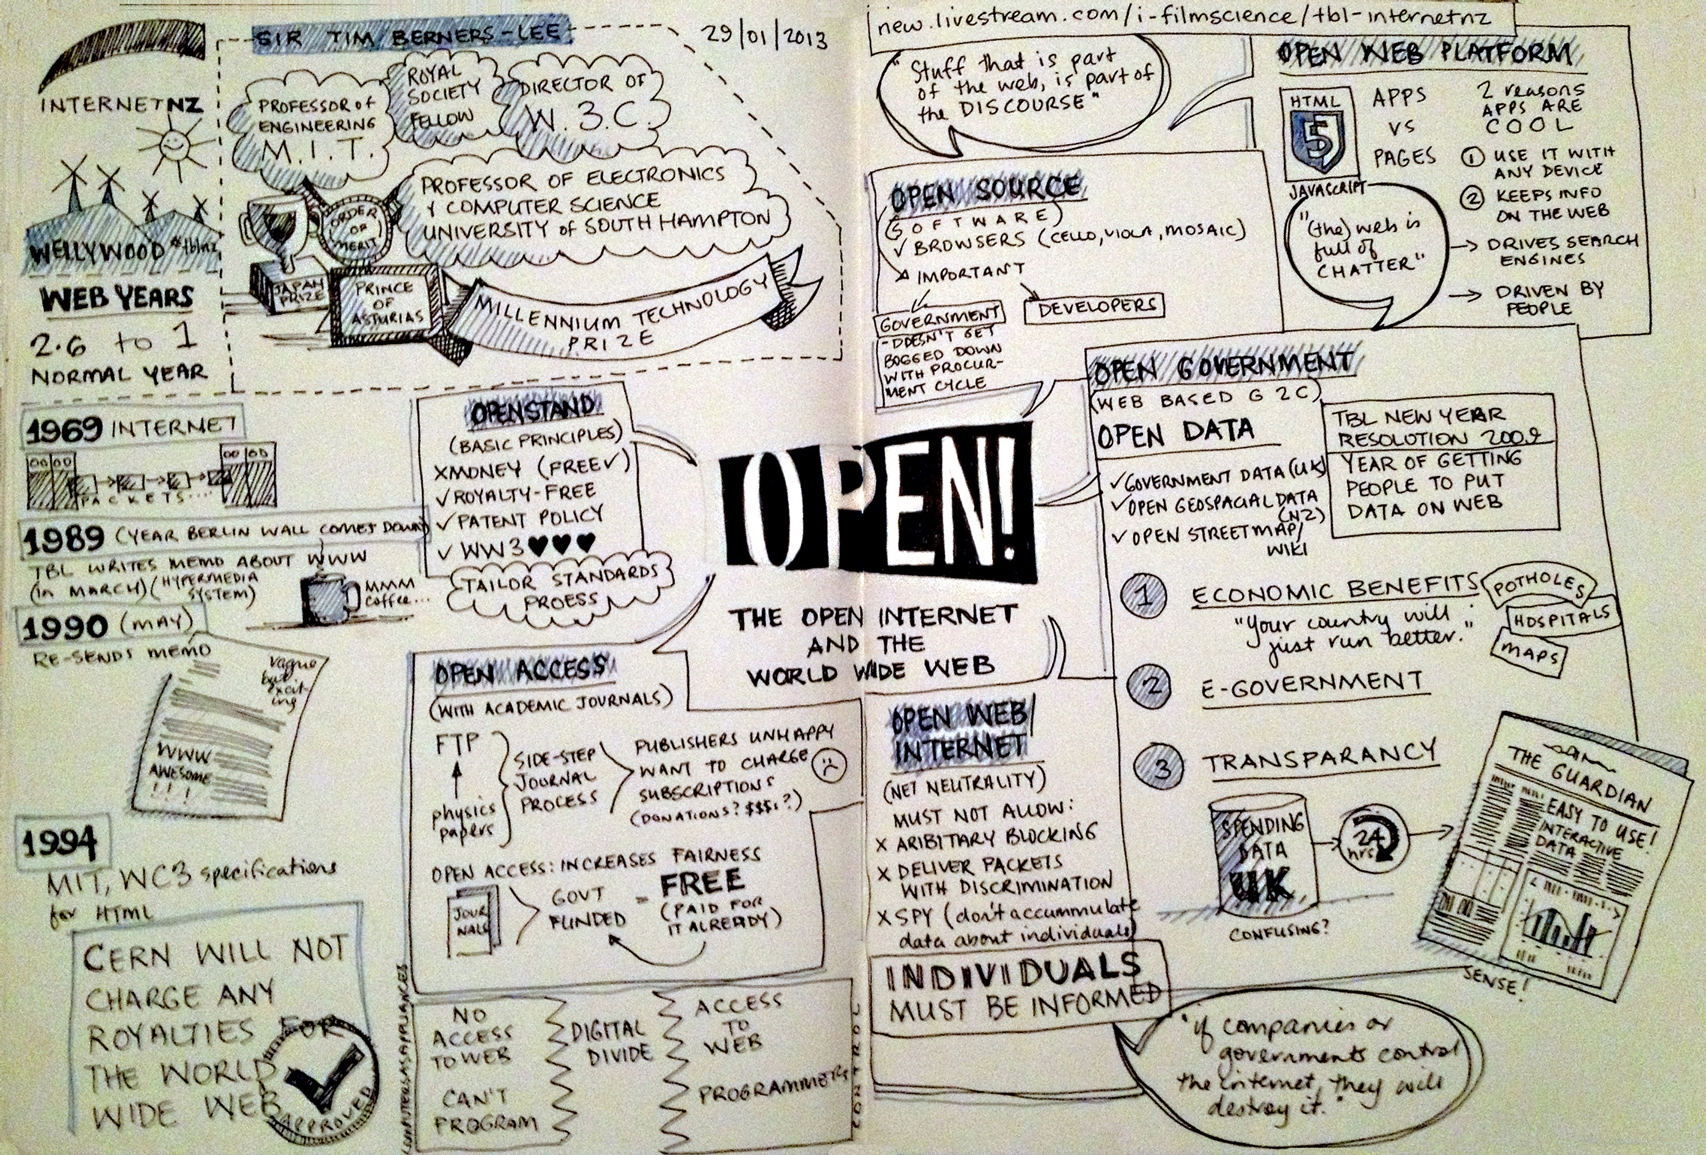 INTERNETNZ
WELLYWOOD #tblnz
WEB YEARS
2.6 to 1
NORMAL YEAR
SIR TIM BERNERS-LEE
29/01/2013
PROFESSOR of
ENGINEERING
M.I.T.
ROYAL
SOCIETY
FELLOW
DIRECTOR OF
W.3.C.
PROFESSOR OF ELECTRONICS
Y COMPUTER SCIENCE
UNIVERSITY of SOUTH HAMPTON
ORDER
OF
MERIT
JAPAN
PRIZE
PRINCE
OF
ASTURIAS
MILLENNIUM TECHNOLOGY
PRIZE
1969 INTERNET
PACKETS....
1989 (YEAR BERLIN WALL COMES DOWN)
TBL WRITES MEMO ABOUT WWW
(in MARCH) (HYPERMEDIA
SYSTEM)
MMM
coffee...
1990 (MAY)
RE-SENDS MEMO
vague
but
excit-
ing
WWW
AWESOME
!!!
1994
MIT, WC3 specifications
for HTML
CERN WILL NOT
CHARGE ANY
ROYALTIES FOR
THE WORLD
WIDE WEB
APPROVED
OPENSTAND
(BASIC PRINCIPLES)
XMONEY (FREE✓)
✓ROYALTY-FREE
✓PATENT POLICY
✓ WW3 ♥♥♥
TAILOR STANDARDS
PROESS
OPEN!
THE OPEN INTERNET
AND THE
WORLD WIDE WEB
OPEN ACCESS
(WITH ACADEMIC JOURNALS)
FTP
physics
papers
SIDE-STEP
JOURNAL
PROCESS
PUBLISHERS UNHAPPY
WANT TO CHARGE
SUBSCRIPTIONS
(DONATIONS? $$$;?)
OPEN ACCESS: INCREASES FAIRNESS
JOUR
NALS
GOVT
FUNDED
= FREE
(PAID FOR
IT ALREADY)
COMPUTERS AS APPLIANCES
NO
ACCESS
TO WEB
CAN'T
PROGRAM
DIGITAL
DIVIDE
ACCESS
TO
WEB
PROGRAMMERS
CONTROL
new.livestream.com/i-filmscience/tbl-internetnz
"Stuff that is part
of the web, is part of
the DISCOURSE"
OPEN SOURCE
(SOFTWARE)
✓ BROWSERS (CELLO, VIOLA, MOSAIC)
IMPORTANT
GOVERNMENT
-DOESN'T GET
BOGGED DOWN
WITH PROCUR-
MENT CYCLE
DEVELOPERS
OPEN WEB PLATFORM
HTML
5
JAVASCRIPT
APPS
VS
PAGES
2 reasons
APPS ARE
COOL
1 USE IT WITH
ANY DEVICE
2 KEEPS INFO
ON THE WEB
→ DRIVES SEARCH
ENGINES
→ DRIVEN BY
PEOPLE
"(the) web is
full of
CHATTER"
OPEN GOVERNMENT
(WEB BASED G2C)
OPEN DATA
✓GOVERNMENT DATA (UK)
✓OPEN GEOSPACIAL DATA
(NZ)
✓OPEN STREETMAP/
WIKI
TBL NEW YEAR
RESOLUTION 2009
YEAR OF GETTING
PEOPLE TO PUT
DATA ON WEB
1 ECONOMIC BENEFITS
"Your country will
just run better."
POTHOLES
HOSPITALS
MAPS
2 E-GOVERNMENT
3 TRANSPARANCY
SPENDING
DATA
UK
CONFUSING?
24
hrs
THE GUARDIAN
EASY TO USE!
INTERACTIVE
DATA
SENSE!
OPEN WEB/
INTERNET
(NET NEUTRALITY)
MUST NOT ALLOW:
X ARIBITARY BLOCKING
X DELIVER PACKETS
WITH DISCRIMINATION
X SPY (don't accummulate
data about individuals)
INDIVIDUALS
MUST BE INFORMED
"if companies or
governments control
the internet, they will
destroy it."